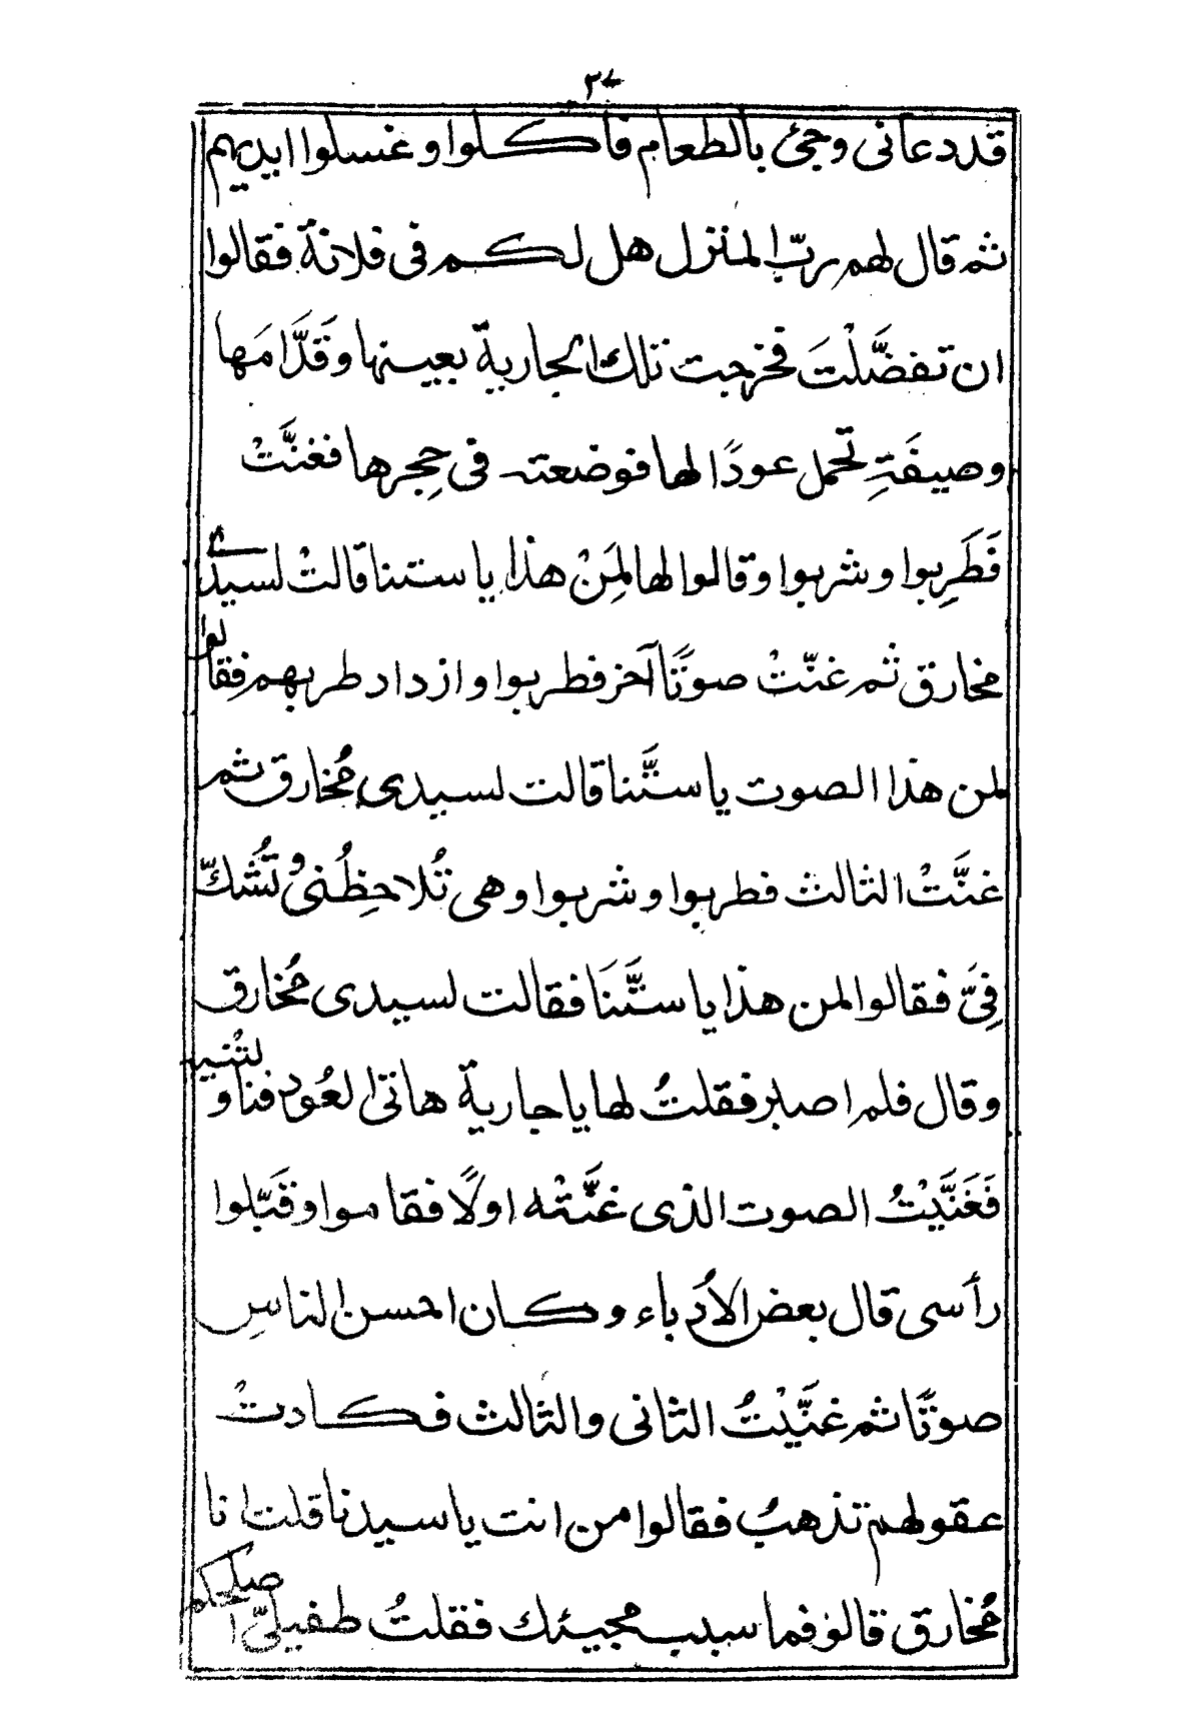 ٣٧
قد دعانى وجئ بالطعام فاكلوا وغسلوا ايديهم
ثم قال لهم ربّ المنزل هل لكم فى فلانة فقالوا
ان تفضَّلْتَ فخرجت تلك الجارية بعينها وقَدَّامَها
وصيفَةٌ تحمل عودًا لها فوضعته فى حِجرها فغنَّتْ
فَطَرِبوا وشربوا وقالوا لها لِمَنْ هذا يا ستنا قالتْ لسيدى
مخارق ثم غنّتْ صوتًا آخر فطربوا وازداد طربهم فقالوا
لمن هذا الصوت يا ستَّنا قالت لسيدى مُخارق ثم
غنَّتْ الثالث فطربوا وشربوا وهى تُلاحِظُنى وتُشكّ
فِىَّ فقالوا لمن هذا يا ستَّنَا فقالت لسيدى مُخارق
وقال فلم اصبر فقلتُ لها يا جارية هاتى العُود فناولتْنيه
فَغَنَّيْتُ الصوت الذى غنَّتْه اولًا فقاموا وقَبّلوا
رأسى قال بعض الاُدَباء وكان احسن الناسِ
صوتًا ثم غنَّيْتُ الثانى والثالث فكادتْ
عقولهم تذهبُ فقالوا من انت يا سيدنا قلت انا
مُخارق قالوا فما سبب مجيئك فقلتُ طفيلىّ اصلحكم